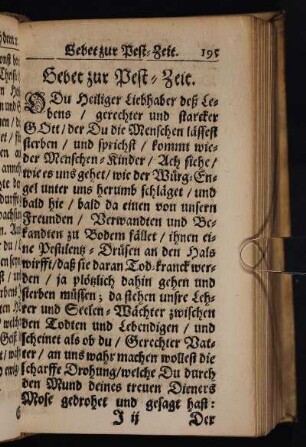 Gebet zur Pest-Zeit. 195
Gebet zur Pest-Zeit.
O Du Heiliger Liebhaber deß Le-
bens / gerechter und starcker
GOtt / der Du die Menschen lässest
sterben / und sprichst / kommt wie-
der Menschen-Kinder / Ach siehe /
wie es uns gehet / wie der Würg-En-
gel unter uns herumb schläget / und
bald hie / bald da einen von unsern
Freunden / Verwandten und Be-
kandten zu Bodem fället / ihnen ei-
ne Pestilentz-Drüsen an den Hals
wirfft / daß sie daran Tod-kranck wer-
den / ja plötzlich dahin gehen und
sterben müssen; da stehen unsre Leh-
rer und Seelen-Wächter zwischen
den Todten und Lebendigen / und
scheinet als ob du / Gerechter Vat-
ter / an uns wahr machen wollest die
scharffe Drohung / welche Du durch
den Mund deines treuen Dieners
Mose gedrohet und gesagt hast:
I ij Der